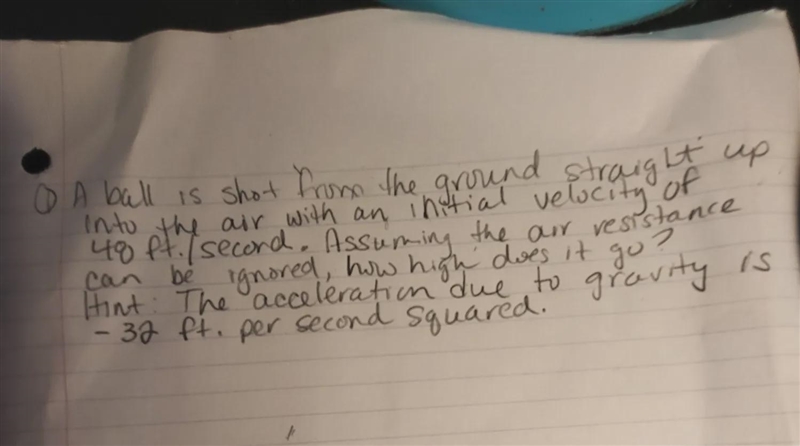 ① A ball is shot from the ground straight up
into the air with an initial velocity of
48 ft./second. Assuming the air resistance
can be ignored, how high does it go?
Hint: The acceleration due to gravity is
- 32 ft. per second squared.